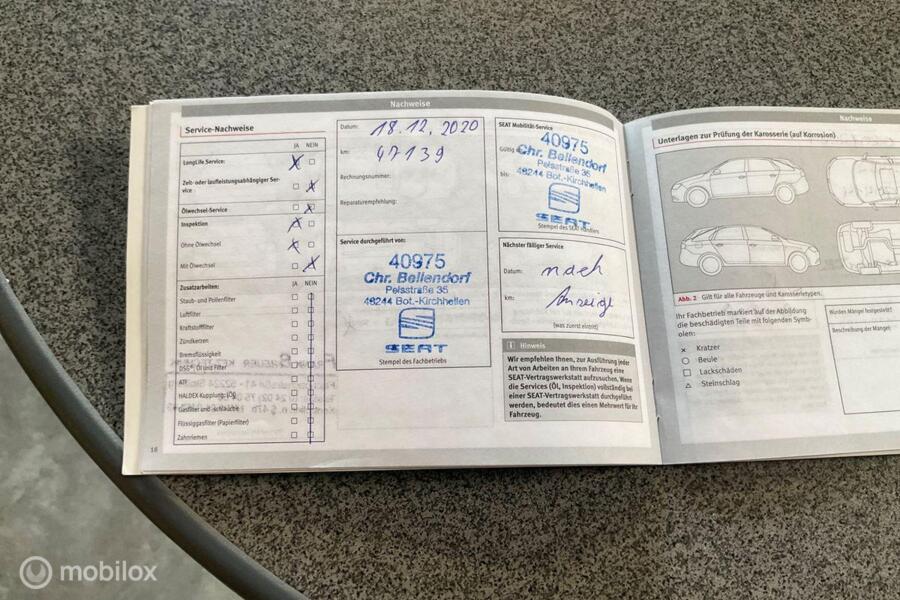 Nachweise
Service-Nachweise
JA NEIN
LongLife Service:
Zeit- oder laufleistungsabhängiger Ser-
vice
Ölwechsel-Service
Inspektion
Ohne Ölwechsel
Mit Ölwechsel
Zusatzarbeiten: JA NEIN
Staub- und Pollenfilter
Luftfilter
Kraftstofffilter
Zündkerzen
Bremsflüssigkeit
DSG®: Öl und Filter
ATF
HALDEX-Kupplung: (Öl)
Gasfilter und -schläuche
Flüssiggasfilter (Papierfilter)
Zahnriemen
16
Datum: 18.12.2020
km: 47139
Rechnungsnummer:
Reparaturempfehlung:
Service durchgeführt von:
40975
Chr. Bellendorf
Pelsstraße 35
46244 Bot.-Kirchhellen
SEAT
Stempel des Fachbetriebs
SEAT Mobilität-Service
Gültig
bis:
40975
Chr. Bellendorf
Pelsstraße 35
46244 Bot.-Kirchhellen
SEAT
Stempel des SEAT Händlers
Nächster fälliger Service
Datum: nach
km: Anzeige
(was zuerst eintritt)
i Hinweis
Wir empfehlen Ihnen, zur Ausführung jeder
Art von Arbeiten an Ihrem Fahrzeug eine
SEAT-Vertragswerkstatt aufzusuchen. Wenn
die Services (Öl, Inspektion) vollständig bei
einer SEAT-Vertragswerkstatt durchgeführt
werden, bedeutet dies einen Mehrwert für Ihr
Fahrzeug.
Nachweise
Unterlagen zur Prüfung der Karosserie (auf Korrosion)
Abb. 2 Gilt für alle Fahrzeuge und Karosserietypen.
Ihr Fachbetrieb markiert auf der Abbildung
die beschädigten Teile mit folgenden Symb-
olen:
× Kratzer
○ Beule
□ Lackschäden
△ Steinschlag
Wurden Mängel festgestellt?
Beschreibung der Mängel:
mobilox